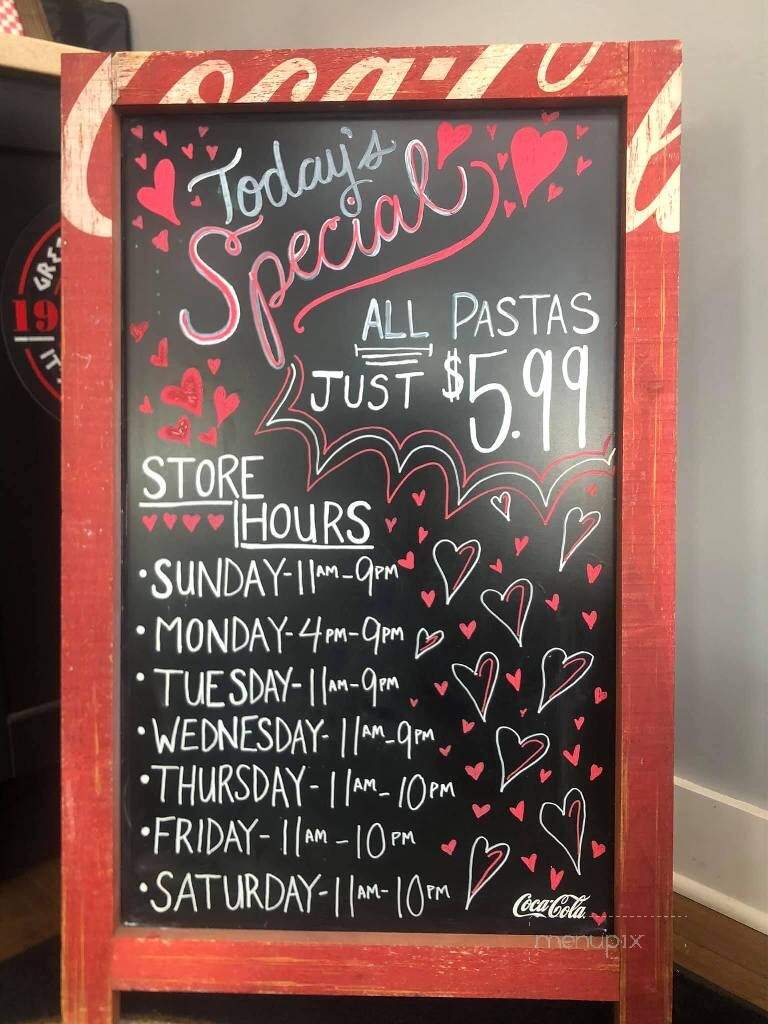 Coca-Cola
GRE
19
IT
Today's
Special
ALL PASTAS
JUST $5.99
STORE
HOURS
•SUNDAY-11AM-9PM
•MONDAY-4PM-9PM
•TUESDAY-11AM-9PM
•WEDNESDAY-11AM-9PM
•THURSDAY-11AM-10PM
•FRIDAY-11AM-10PM
•SATURDAY-11AM-10PM
Coca-Cola
menupix